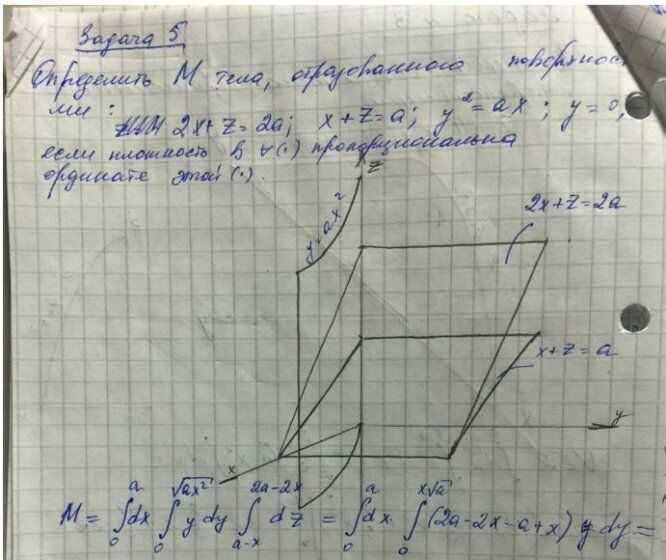 Задача 5
Определить M тела, образованного поверхност
ми :
2x+z=2a; x+z=a; y²=ax; y=0,
если плотность в ∀(·) пропорциональна
ординате этой (·).
z
y=ax²
2x+z=2a
x+z=a
y
x
M = ∫₀ᵃ dx ∫₀^√(ax²) y dy ∫_(a-x)^(2a-2x) dz = ∫₀ᵃ dx ∫₀^(x√a) (2a-2x-a+x) y dy =